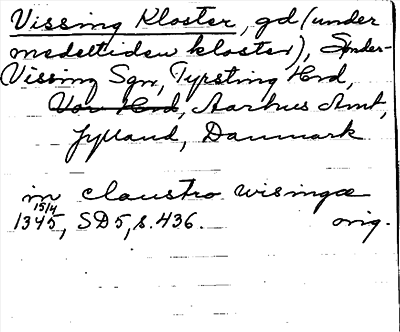 Vissing Kloster, gd (under
medeltiden kloster), Sønder-
Vissing Sgn, Tyrsting Hrd,
Vor Hrd, Aarhus Amt,
Jylland, Danmark
in claustro wisingæ
15/4
1345, SD5, s. 436. orig.